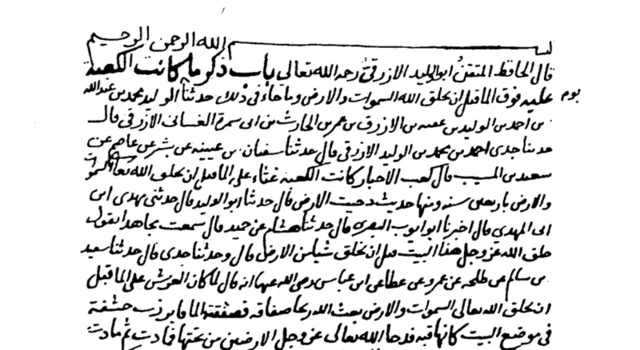 بسم الله الرحمن الرحيم
قال الحافظ المتقن ابو الوليد الازرقي رحمه الله تعالى باب ذكر ما كانت الكعبة
عليه فوق الما قبل ان يخلق الله السموات والارض وما جاء في ذلك حدثنا ابو الوليد محمد بن عبد الله يوم
بن احمد بن الوليد بن عقبه بن الازرق بن عمر بن الحارث بن ابى سمرة الغسانى الازرقى قال
حدثنا جدى احمد بن محمد بن الوليد الازرقى قال حدثنا سفيان بن عيينه عن بشر عن عاصم عن
سعيد بن المسيب قال كعب الاحبار كانت الكعبه غثاء على الما قبل ان يخلق الله تعالى السموات
والارض باربعين سنه ومنها حديث دحيت الارض قال حدثنا ابو الوليد قال حدثنى مهدى ابن
ابى المهدى قال اخبرنا ابو ايوب البصرى قال حدثنا هشام عن حميد قال سمعت مجاهدا يقول
خلق الله عز وجل هذا البيت قبل ان يخلق شيا من الارض قال وحدثنا جدى قال حدثنا سعيد
بن سالم عن طلحه عن عمرو عن عطا عن ابن عباس رضى الله عنهما انه قال لما كان العرش على الما قبل
ان يخلق الله تعالى السموات والارض بعث الله ريحا صفاقه فصفقت الما فابرزت حشفة
في موضع البيت كانها قبه فدحا الله تعالى عز وجل الارضين من تحتها فمادت ثم مادت